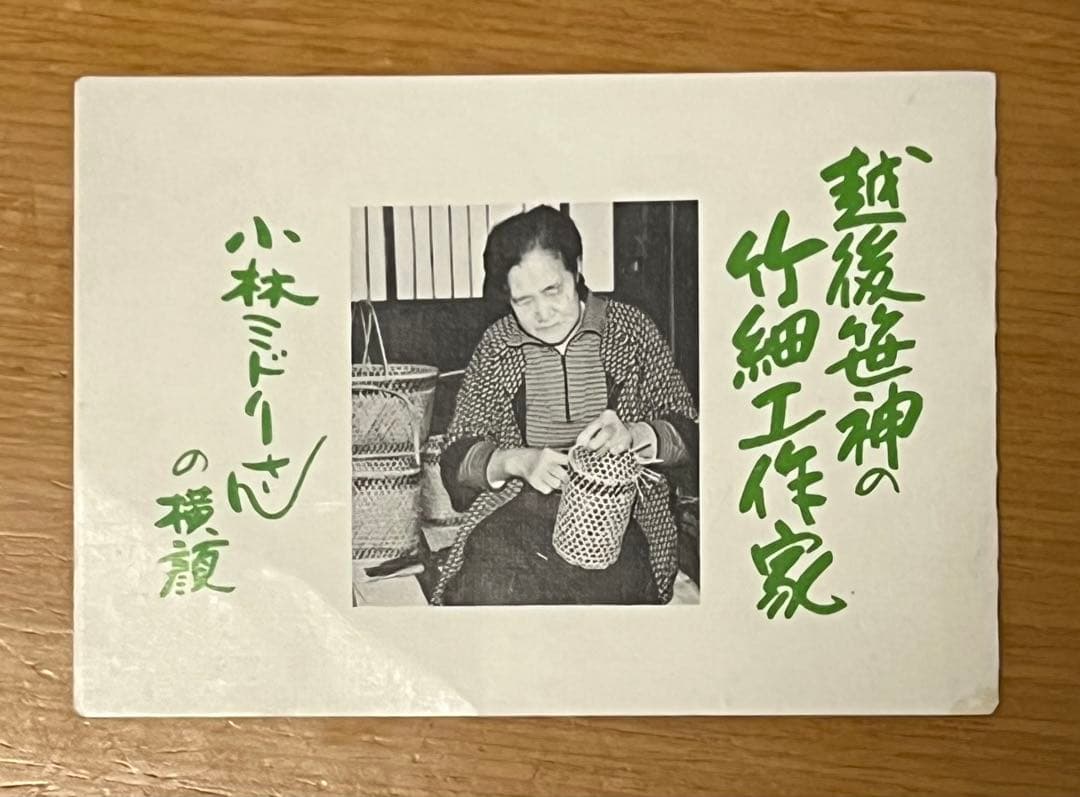 越後笹神の
竹細工作家
小林ミドリさん
の横顔